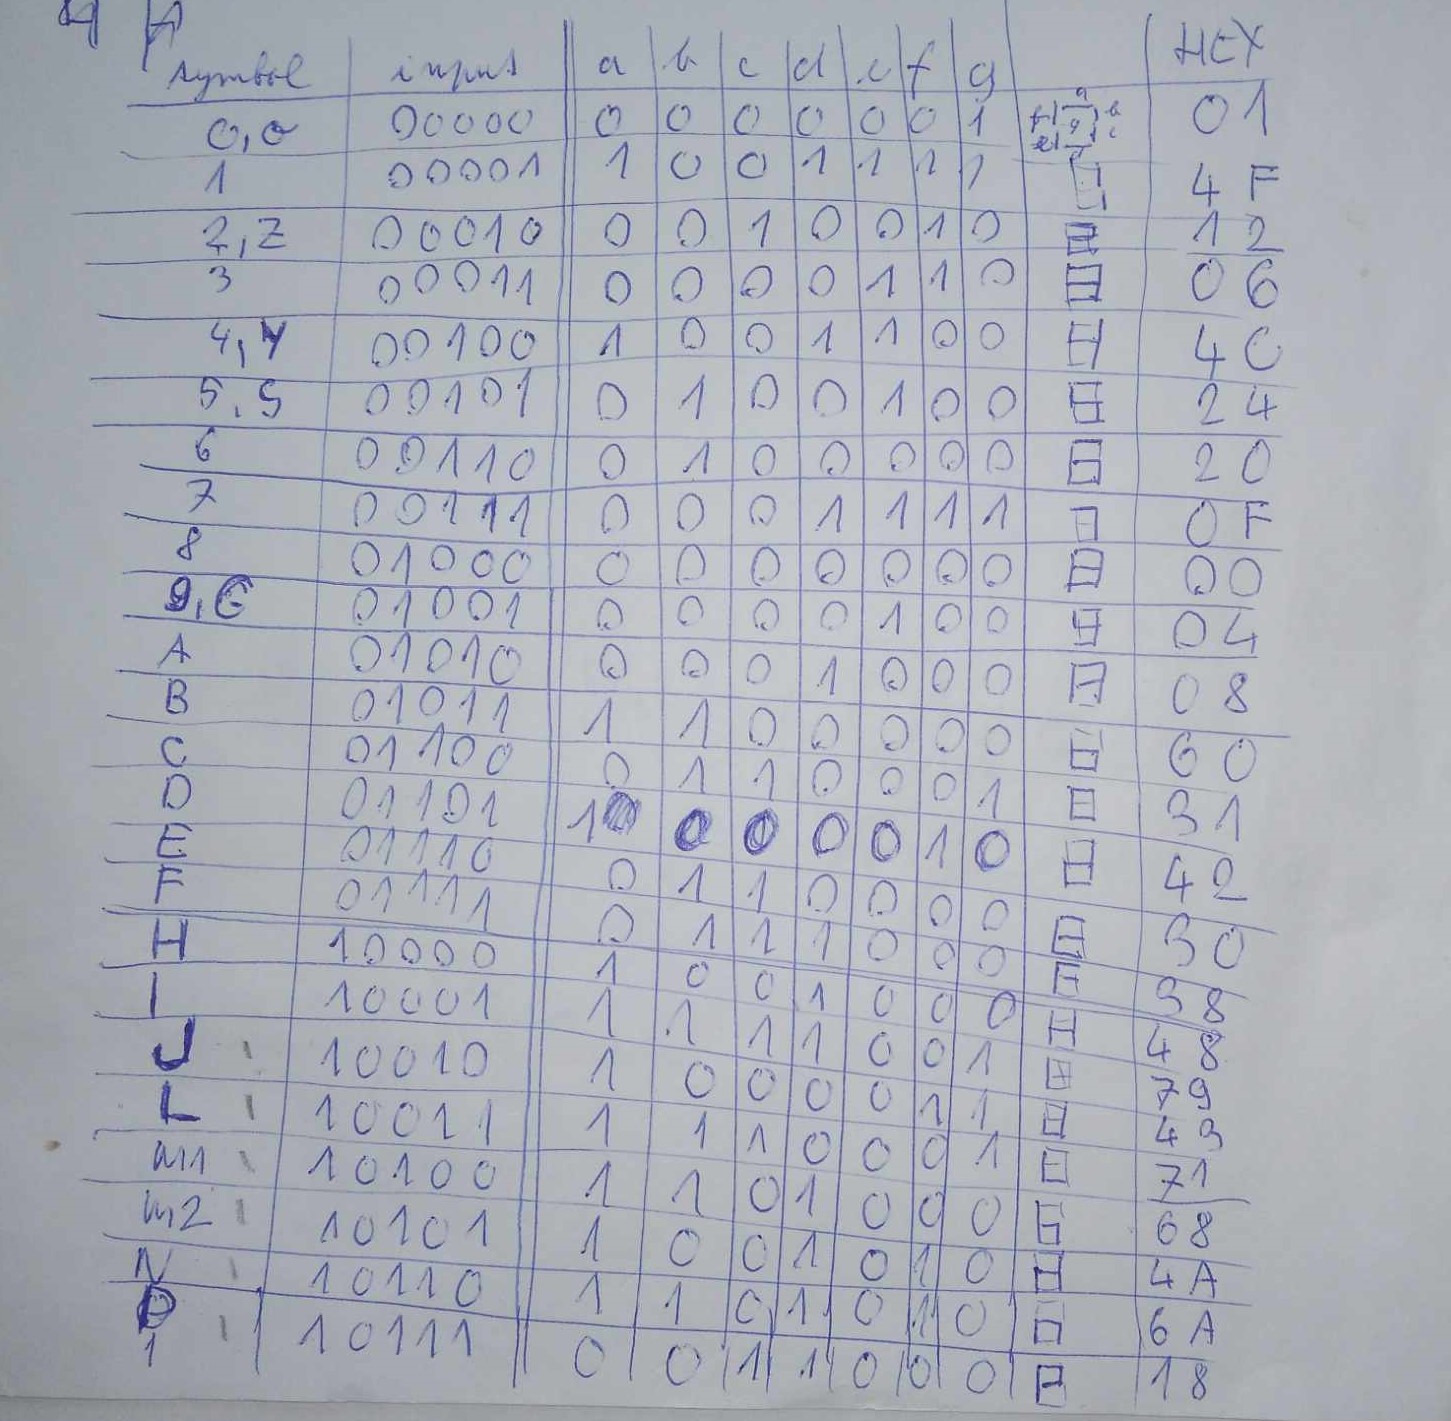 symbol input a b c d e f g HEX
0,0 00000 0 0 0 0 0 0 1 01
1 00001 1 0 0 1 1 1 1 4F
2,Z 00010 0 0 1 0 0 1 0 12
3 00011 0 0 0 0 1 1 0 06
4,Y 00100 1 0 0 1 1 0 0 4C
5,S 00101 0 1 0 0 1 0 0 24
6 00110 0 1 0 0 0 0 0 20
7 00111 0 0 0 1 1 1 1 0F
8 01000 0 0 0 0 0 0 0 00
9,G 01001 0 0 0 0 1 0 0 04
A 01010 0 0 0 1 0 0 0 08
B 01011 1 1 0 0 0 0 0 60
C 01100 0 1 1 0 0 0 1 31
D 01101 1 0 0 0 0 1 0 42
E 01110 0 1 1 0 0 0 0 30
F 01111 0 1 1 1 0 0 0 38
H 10000 1 0 0 1 0 0 0 48
I 10001 1 1 1 1 0 0 1 79
J 10010 1 0 0 0 0 1 1 43
L 10011 1 1 1 0 0 0 1 71
m1 10100 1 1 0 1 0 0 0 68
m2 10101 1 0 0 1 0 1 0 4A
N 10110 1 1 0 1 0 1 0 6A
P 10111 0 0 1 1 0 0 0 18